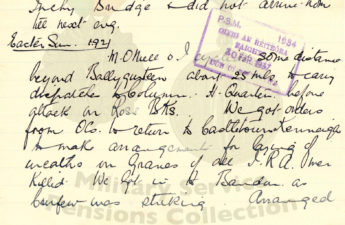 Inchy Bridge & did not arrive home
the next evg.
Easter Sun. 1921
M. O'Neill & I went some distance
beyond Ballygurteen about 25 mls. to carry
dispatches to Column H. Quarters before
attack on Ross Bks. We got orders
from O/C. to return to Castletownkenneigh
to make arrangements for laying of
wreaths on Graves of all I.R.A. men
killed. We got in to Bandon as
Curfew was striking. Arranged
P.S.M. 1634
Military Service
Pensions Collection